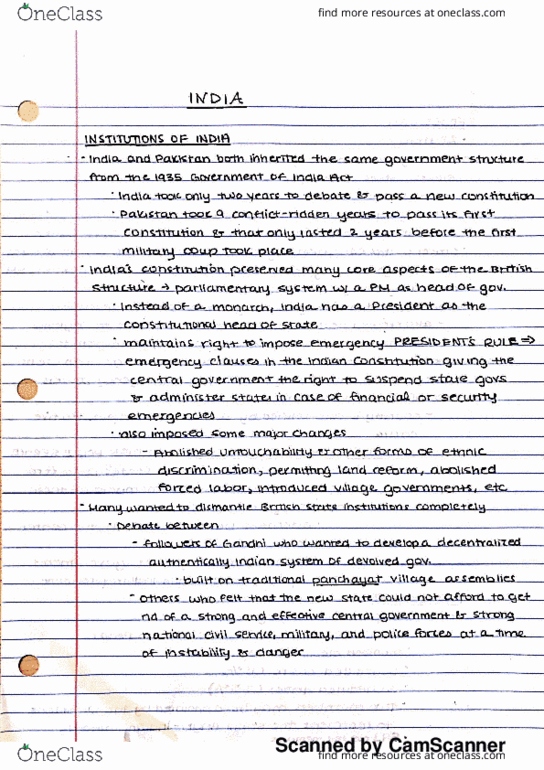 OneClass
find more resources at oneclass.com
INDIA
INSTITUTIONS OF INDIA
· India and Pakistan both inherited the same government structure
from the 1935 Government of India Act
· India took only two years to debate & pass a new constitution
· Pakistan took 9 conflict-ridden years to pass its first
constitution & that only lasted 2 years before the first
military coup took place
· India's constitution preserved many core aspects of the British
structure → parliamentary system w/ a PM as head of gov.
· Instead of a monarch, India has a President as the
constitutional head of state
· maintains right to impose emergency PRESIDENT'S RULE ⇒
emergency clauses in the Indian Constitution giving the
central government the right to suspend state govs
& administer states in case of financial or security
emergencies
· also imposed some major changes
- Abolished untouchability & other forms of ethnic
discrimination, permitting land reform, abolished
forced labor, introduced village governments, etc
· Many wanted to dismantle British state institutions completely
· Debate between
- followers of Gandhi who wanted to develop a decentralized
authentically Indian system of devolved gov.
· built on traditional panchayat village assemblies
- Others who felt that the new state could not afford to get
rid of a strong and effective central government & strong
national civil service, military, and police forces at a time
of instability & danger
Scanned by CamScanner
OneClass
find more resources at oneclass.com